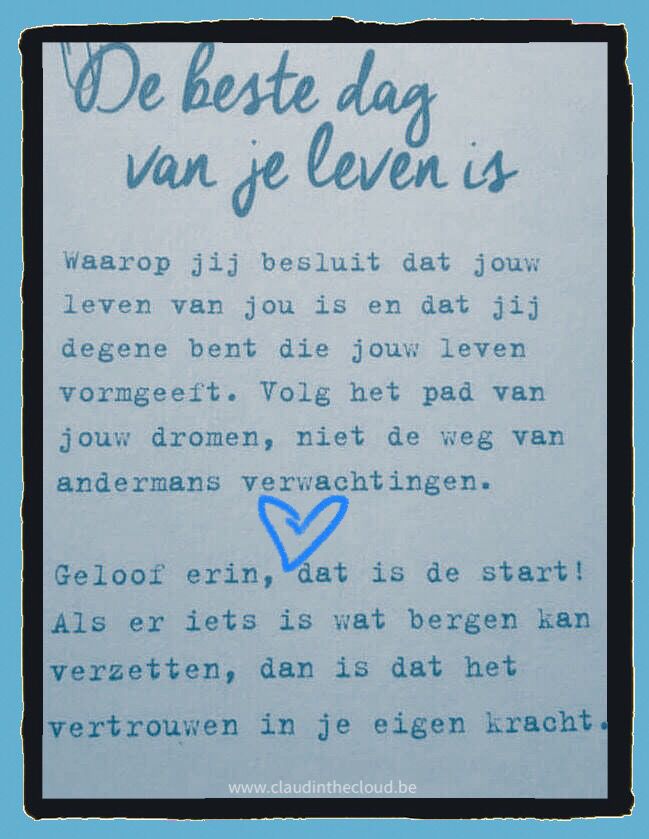 De beste dag
van je leven is
Waarop jij besluit dat jouw
leven van jou is en dat jij
degene bent die jouw leven
vormgeeft. Volg het pad van
jouw dromen, niet de weg van
andermans verwachtingen.
Geloof erin, dat is de start!
Als er iets is wat bergen kan
verzetten, dan is dat het
vertrouwen in je eigen kracht.
www.claudinthecloud.be